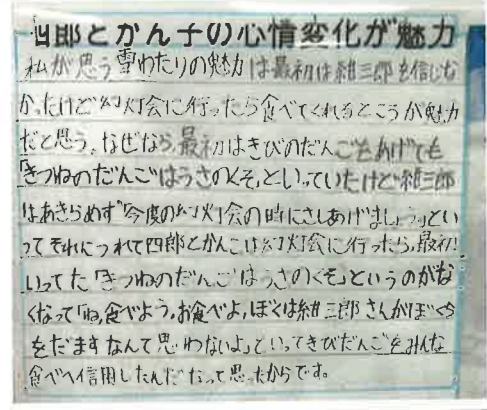 四郎とかん子の心情変化が魅力
私が思う雪わたりの魅力は最初は紺三郎を信じな
かったけど幻灯会に行ったら食べてくれるところが魅力
だと思う。なぜなら、最初はきびのだんごをあげても
「きつねのだんごはうさのくそ」といっていたけど紺三郎
はあきらめず「今度の幻灯会の時にさしあげましょう」とい
ってそれにつれて四郎とかんこは幻灯会に行ったら、最初
いってた「きつねのだんごはうさのくそ」というのがな
くなって「ね、食べよう。お食べよ、ぼくは紺三郎さんがぼくら
をだますなんて思わないよ」といってきびだんごをみんな
食べへ信用したんだなって思ったからです。